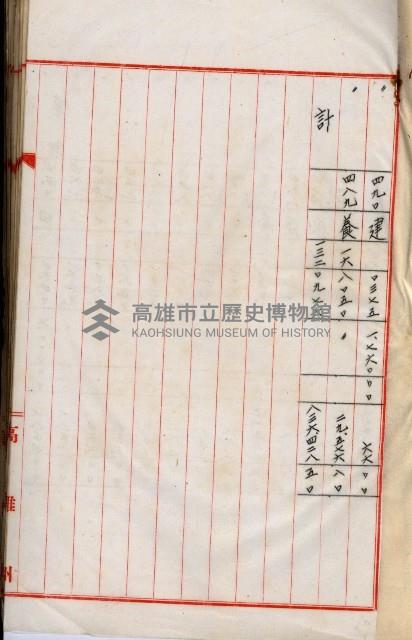 〃 四九〇 建 〇三七五 一、七六〇〇〇 六六〇〇
〃 四八九 養 一六八〇五〇 二九、五七六八〇
計 一三二〇九七 八三六四二八五〇
高雄州
高雄市立歷史博物館
KAOHSIUNG MUSEUM OF HISTORY